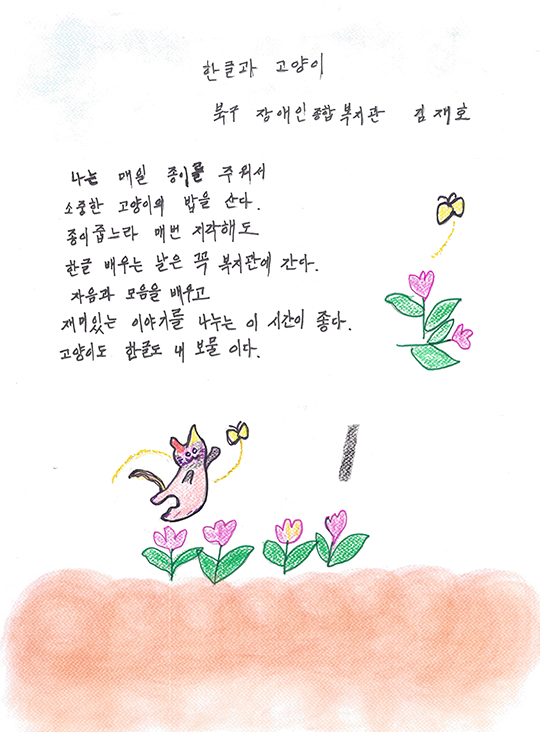 한글과 고양이
북구 장애인종합복지관 김재호
나는 매일 종이를 주워서
소중한 고양이의 밥을 산다.
종이줍느라 매번 지각해도
한글 배우는 날은 꼭 복지관에 간다.
자음과 모음을 배우고
재미있는 이야기를 나누는 이 시간이 좋다.
고양이도 한글도 내 보물 이다.